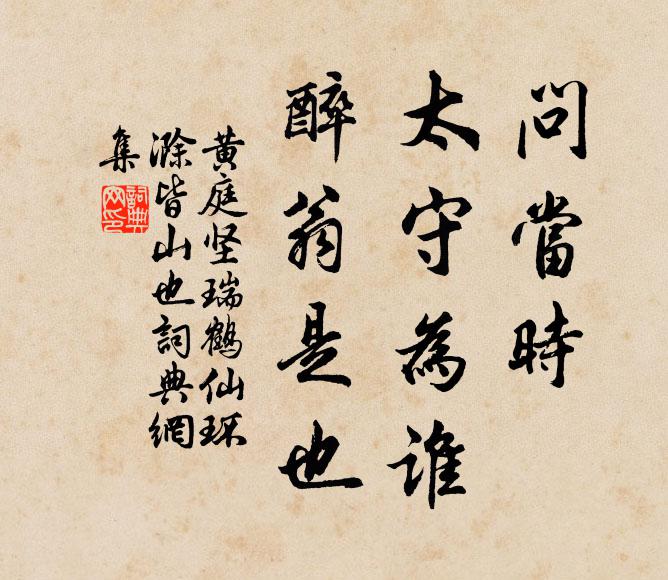 問當時
太守為谁
醉翁是也
黄庭坚瑞鹤仙环
滁皆山也詞典網
集
詞典
網印